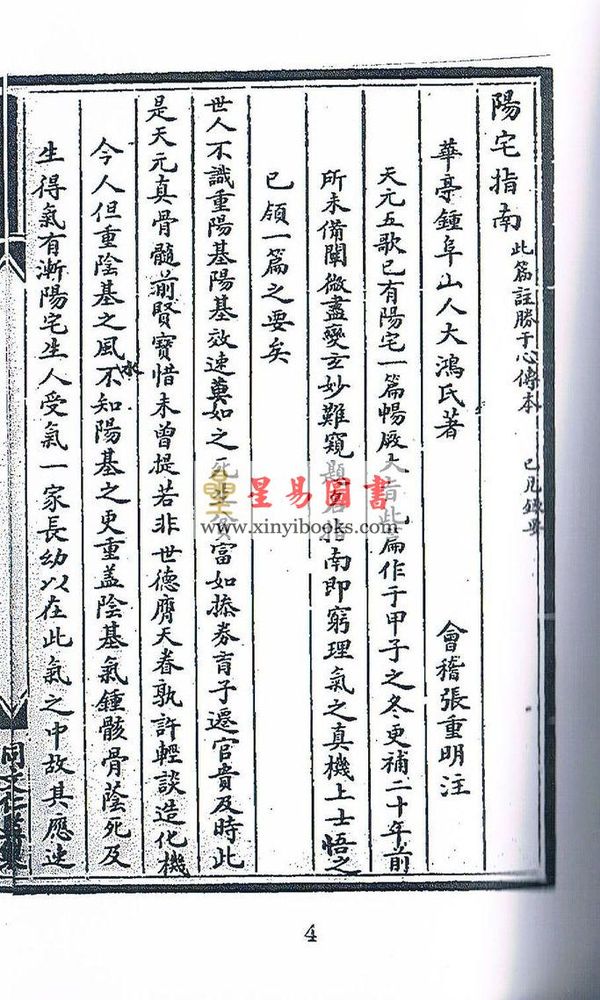 陽宅指南 此篇註勝于心傳本
華亭鍾阜山人大鴻氏著 會稽張重明注
天元五歌已有陽宅一篇暢厥大旨此篇作于甲子之冬更補二十年前
所未備闡微盡變玄妙難窺題名指南即窮理氣之真機上士悟之
已領一篇之要矣
世人不識重陽基陽基效速莫如之死生貧富如操券育子遷官貴及時此
是天元真骨髓前賢寶惜未曾提若非世德膺天眷孰許輕談造化機
今人但重陰基之風水不知陽基之更重蓋陰基氣鍾骸骨蔭死及
生得氣有漸陽宅生人受氣一家長幼以在此氣之中故其應速
星易圖書
www.xinyibooks.com
4